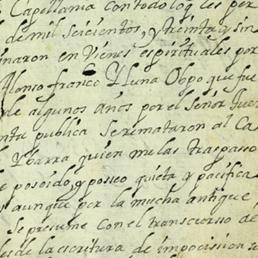 Capellania con todo lo q̃ les per
de mil seiscientos, y treinta y sin
inaron en Vienes espirituales por
Alonso franco Y lluna Obpo que fue
de algunos años por el Señor Jues
nta publica se remataron al Ca
Ybarra quien me las traspasso
e poseido, y poseo quieta y pacifica
y aunque por la mucha antigue
se presume con el transcurso de
desde la escritura de impocission se